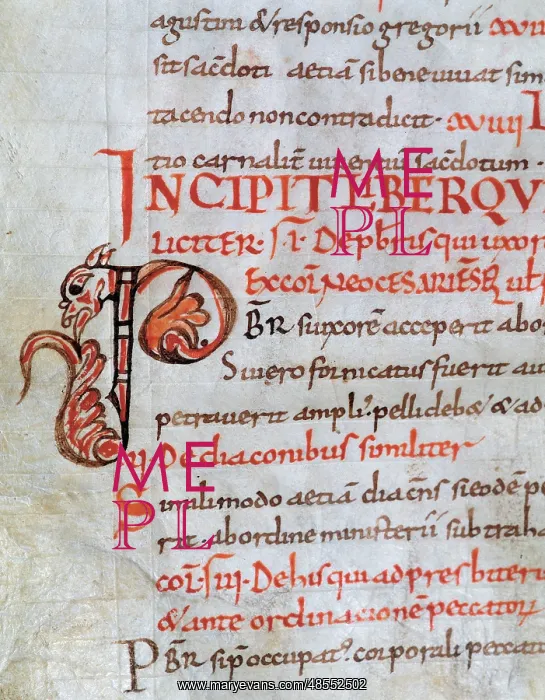 agustini & responsio gregorii xviii
sit sacdoti aetiā si bene uiuat sim
tacendo non contradicit. xviiii I
tio carnalit̄ sacdotum.
INCIPIT LIBER QV
LICITER. I. De pbr̄is qui uxor
Ex coī. NEOCESARIESE
PBR si uxorē acceperit abo
Si uero fornicatus fuerit au
petrauerit ampli pelli deb& & ad
II De diaconibus similiter
Simili modo aetiā diac̄ns si eodē
rit. ab ordine ministerii sub traha
coī. III. De his qui ad presbiteri
& ante ordinationē peccator
PBR si p̄occupat corporali peccat
ME
PL
ME
PL
www.maryevans.com/48552502